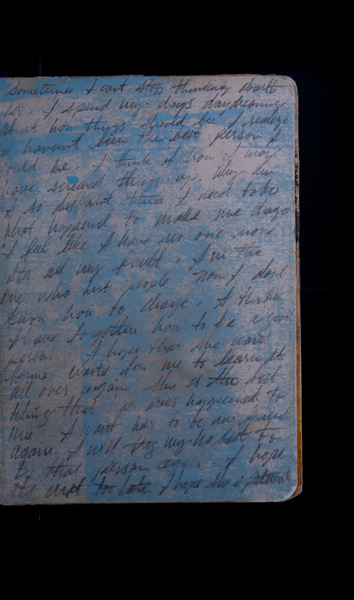 sometimes I cant stop thinking about
her. I spend my days daydreaming
about how things should be. I realize
I havent been the best person I
could be. I think of how I may
have screwed things up. Why am
I so different than I used to be
What happened to make me
I feel like I have no one now
Its all my fault. I'm the
one who hurt people Now I dont
know how to change. I think
I have forgotten how to be a good
person. I hope that she
waits for me to learn it
all over again. She is the best
thing that is ever happened to
me. I want her to be my friend
again. I will try my best to
be that person again. I hope
its not to late I hope she